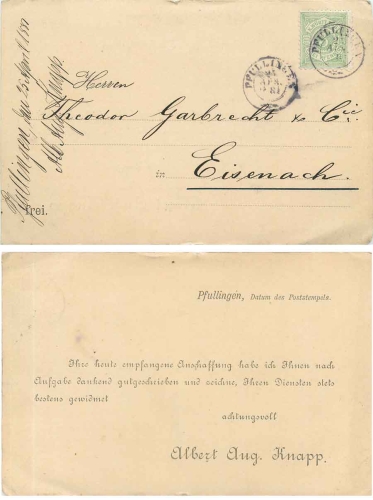 PFULLINGEN
PFULLINGEN
Pfullingen
Herren
Theodor Garbrecht & Cie.
in
Eisenach.
frei.
Pfullingen, Datum des Poststempels.
Ihre heute empfangene Anschaffung habe ich Ihnen nach
Aufgabe dankend gutgeschrieben und zeichne, Ihren Diensten stets
bestens gewidmet
achtungsvoll
Albert Aug. Knapp.